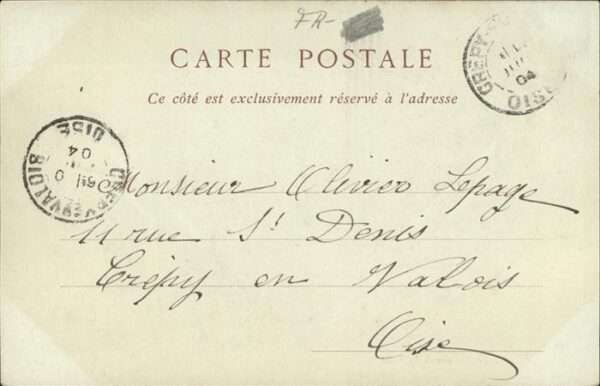 FR-
CARTE POSTALE
Ce côté est exclusivement réservé à l'adresse
CRÉPY
04
OISE
CRÉPY-EN-VALOIS
04
OISE
Monsieur Olivier Lepage
11 rue St Denis
Crépy en Valois
Oise